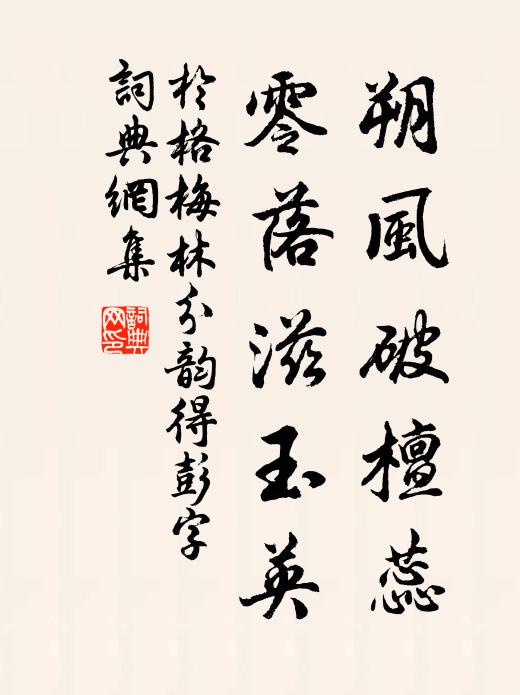 朔風破檀蕊
零落滋玉英
於格梅林分韵得彭字
詞典網集
詞典网印